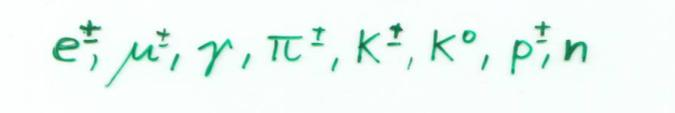 e±, μ±, γ, π±, K±, K⁰, p±, n